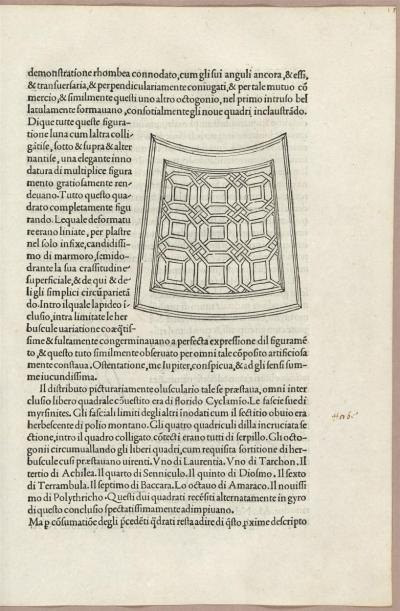 demonstratione rhombea connodato, cum gli sui anguli ancora, & essi,
& transuersaria, & perpendiculariamente coniugati, & per tale mutuo cõ
mercio, & similmente questi uno altro octogonio, nel primo intruso bel
latulamente formauano, consotialmente gli noue quadri inclaustrãdo.
Di que tutte queste figura-
tione luna cum laltra colli-
gãtise, sotto & supra & alter
nantise, una elegante inno
datura di multiplice figura
mento gratiosamente ren-
deuano. Tutto questo qua-
drato completamente figu
rando. Le quale deformatu
re erano liniate, per plastre
nel solo infixe, candidissi-
mo di marmoro, semido-
drante la sua crassitudine
superficiale, & de qui & de
li gli simplici circũparietã
do. Intro il quale lapideo i-
clusio, intra limitate le her
buscule uariatione coæq̃tis-
sime & fultamente congerminauano a perfecta expressione dil figuramẽ
to, & questo tuto similmente obseruato per omni tale cõposito artificiosa
mente constaua. Ostentatione, me Iupiter, conspicua, & ad gli sensi sum-
me iucundissima.
Il distributo picturatiamente olusculario tale se præstaua, omni inter
clusio libero quadrale cõuestito era di florido Cyclamĩo. Le fascie sue di
myrsinites. Gli fasciali limiti degli altri inodati cum il sectitio obuio era
herbescente di polio montano. Gli quatro quadriculi dilla incruciata se
ctione, intro il quadro colligato cõtecti erano tutti di serpillo. Gli octo-
gonii circumuallando gli liberi quadri, cum requisita sortitione di her-
buscule cusi præstauano uirenti. Vno di Laurentia. Vno di Tarchon. Il
tertio di Achilea. Il quarto di Senniculo. Il quinto di Diosmo. Il sexto
di Terrambula. Il septimo di Baccara. Lo octauo di Amaraco. Il nouissi
mo di Polythricho. Questi dui quadrati recẽsiti alternatamente in gyro
di questo conclusio spectatissimamente adimpiuano.
Ma ꝑ cõsumatiõe degli p̃cedẽti q̃drati resta a dire di q̃sto ꝓxime descripto